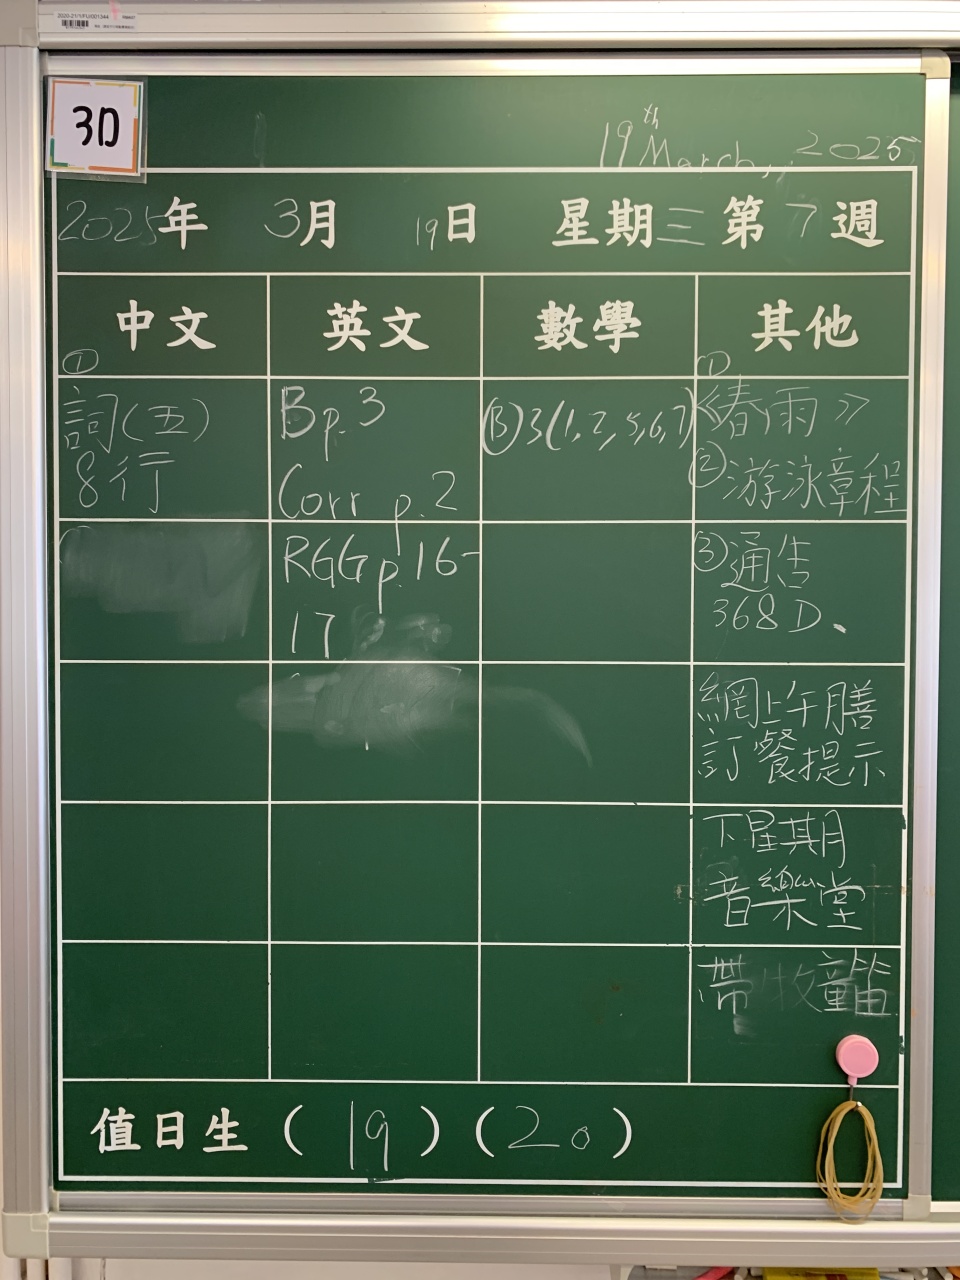 2020-21/1/FU/001344
3D
19th March, 2025
2025年 3月 19日 星期三 第7週
中文 英文 數學 其他
①
詞(五)
8行
Bp.3
Corr p.2
RGG p.16-
17
(B)3(1,2,5,6,7)
①
《春雨》
②游泳章程
③通告
368D、
網上午膳
訂餐提示
下星期
音樂堂
帶牧童笛
值日生(19)(20)